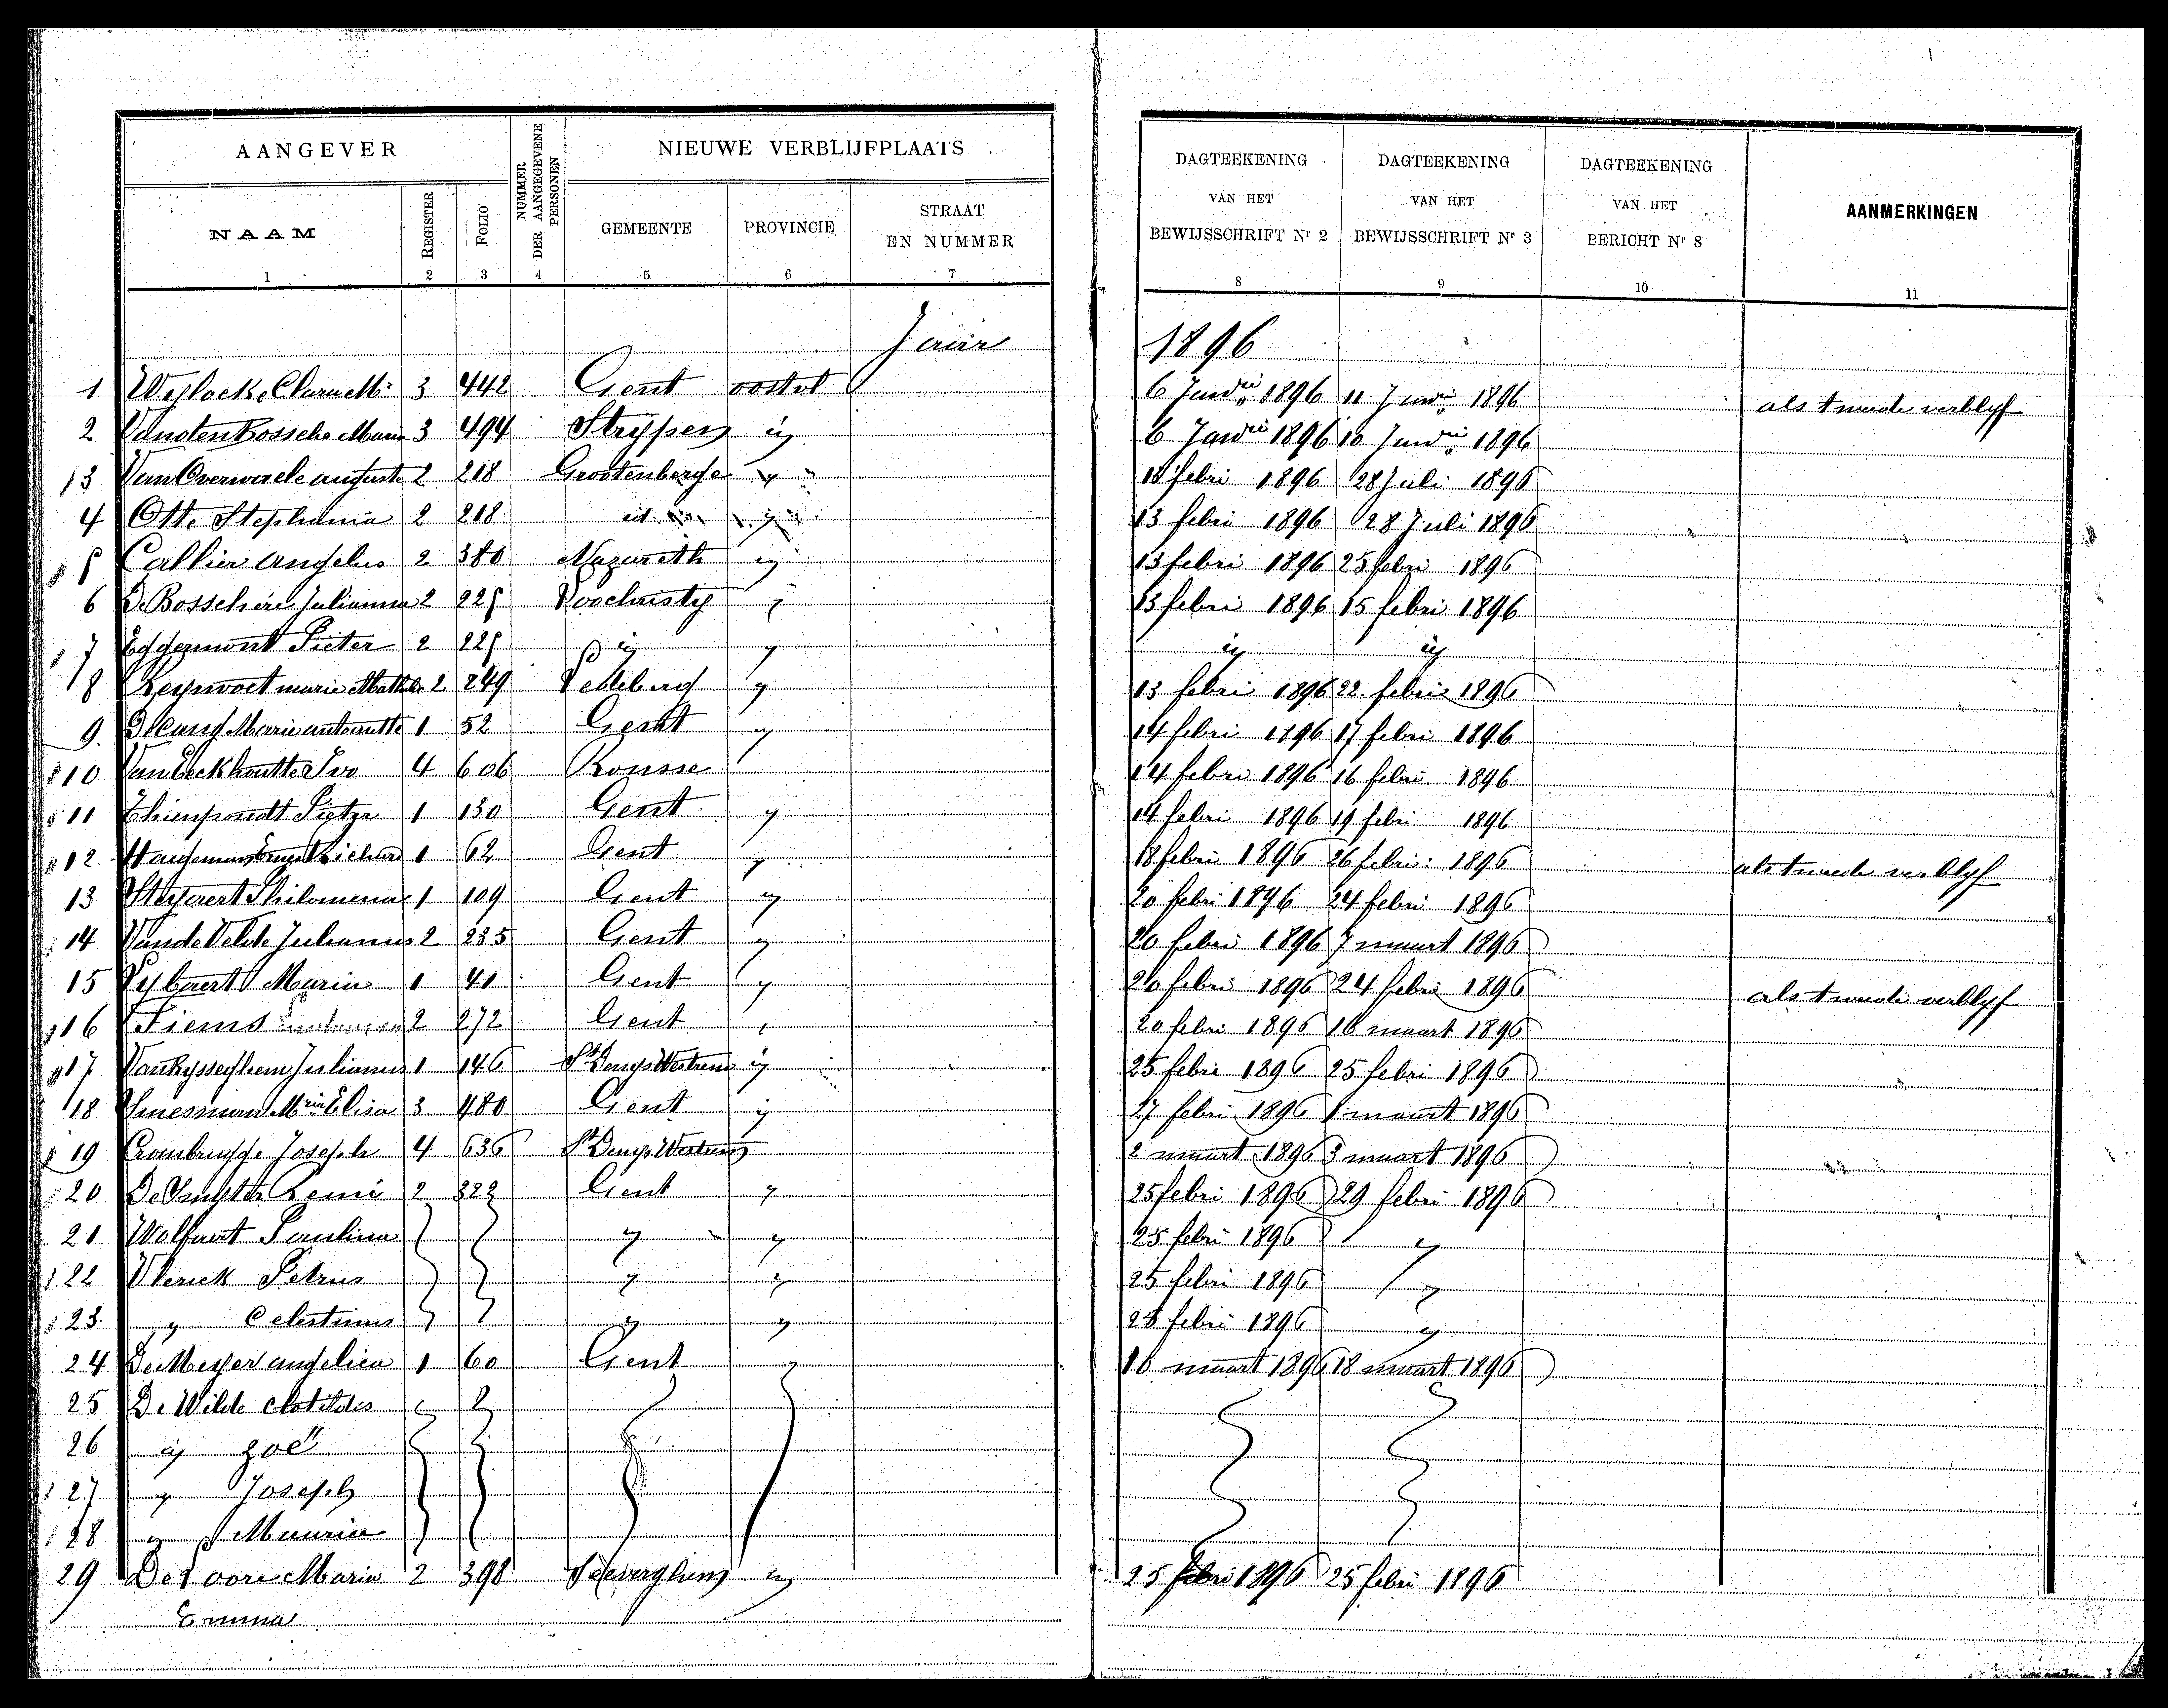 AANGEVER
NUMMER DER AANGEGEVENE PERSONEN
NIEUWE VERBLIJFPLAATS
DAGTEEKENING VAN HET BEWIJSSCHRIFT Nr 2
DAGTEEKENING VAN HET BEWIJSSCHRIFT Nr 3
DAGTEEKENING VAN HET BERICHT Nr 8
AANMERKINGEN
NAAM REGISTER FOLIO GEMEENTE PROVINCIE STRAAT EN NUMMER
1 2 3 4 5 6 7 8 9 10 11
Jaar 1896
1 3 442 Gent oostvl 6 Janrii 1896 11 Janrii 1896 als tweede verblyf
2 Vandenbossche Maria 3 494 Strijpen id 6 Janrii 1896 10 Janrii 1896
13 2 218 Grootenberge id 18 febri 1896 28 Juli 1896
4 Otte Stephania 2 218 id id 13 febri 1896 28 Juli 1896
5 Callier Angelus 2 380 Nazareth id 13 febri 1896 25 febri 1896
6 De Bosschere Julianna 2 225 Loochristy id 13 febri 1896 15 febri 1896
7 Eggermont Pieter 2 225 id id id id
8 2 249 Ledeberg id 13 febri 1896 22 febri 1896
9 1 52 Gent id 14 febri 1896 17 febri 1896
10 Van Eeckhoutte Ivo 4 606 Ronsse 14 febri 1896 16 febri 1896
11 Thienpondt Pieter 1 130 Gent id 14 febri 1896 19 febri 1896
12 1 62 Gent id 18 febri 1896 26 febri 1896 als tweede verblyf
13 Steyaert Philomena 1 109 Gent id 20 febri 1896 24 febri 1896
14 Vande Velde Julianus 2 235 Gent id 20 febri 1896 7 maart 1896
15 Maria 1 41 Gent id 20 febri 1896 24 febri 1896 als tweede verblyf
16 Tiems 2 272 Gent 20 febri 1896 16 maart 1896
17 Vanhysseghem Julianus 1 146 St Denys Westrem id 25 febri 1896 25 febri 1896
18 Elisa 3 480 Gent id 27 febri 1896 1 maart 1896
19 Crombrugge Joseph 4 636 St Denys Westrem 2 maart 1896 3 maart 1896
20 Remi 2 322 Gent id 25 febri 1896 29 febri 1896
21 Wolfaert Paulina id id 25 febri 1896 id
22 Vlerick Petrus id id 25 febri 1896 id
23 id Celestinus id id 28 febri 1896 id
24 De Meyer angelica 1 60 Gent id 16 maart 1896 18 maart 1896
25 De Wilde Clotildis
26 id Zoë
27 id Joseph
28 id Maurice
29 Maria 2 398 id 25 febri 1896 25 febri 1896
Emma